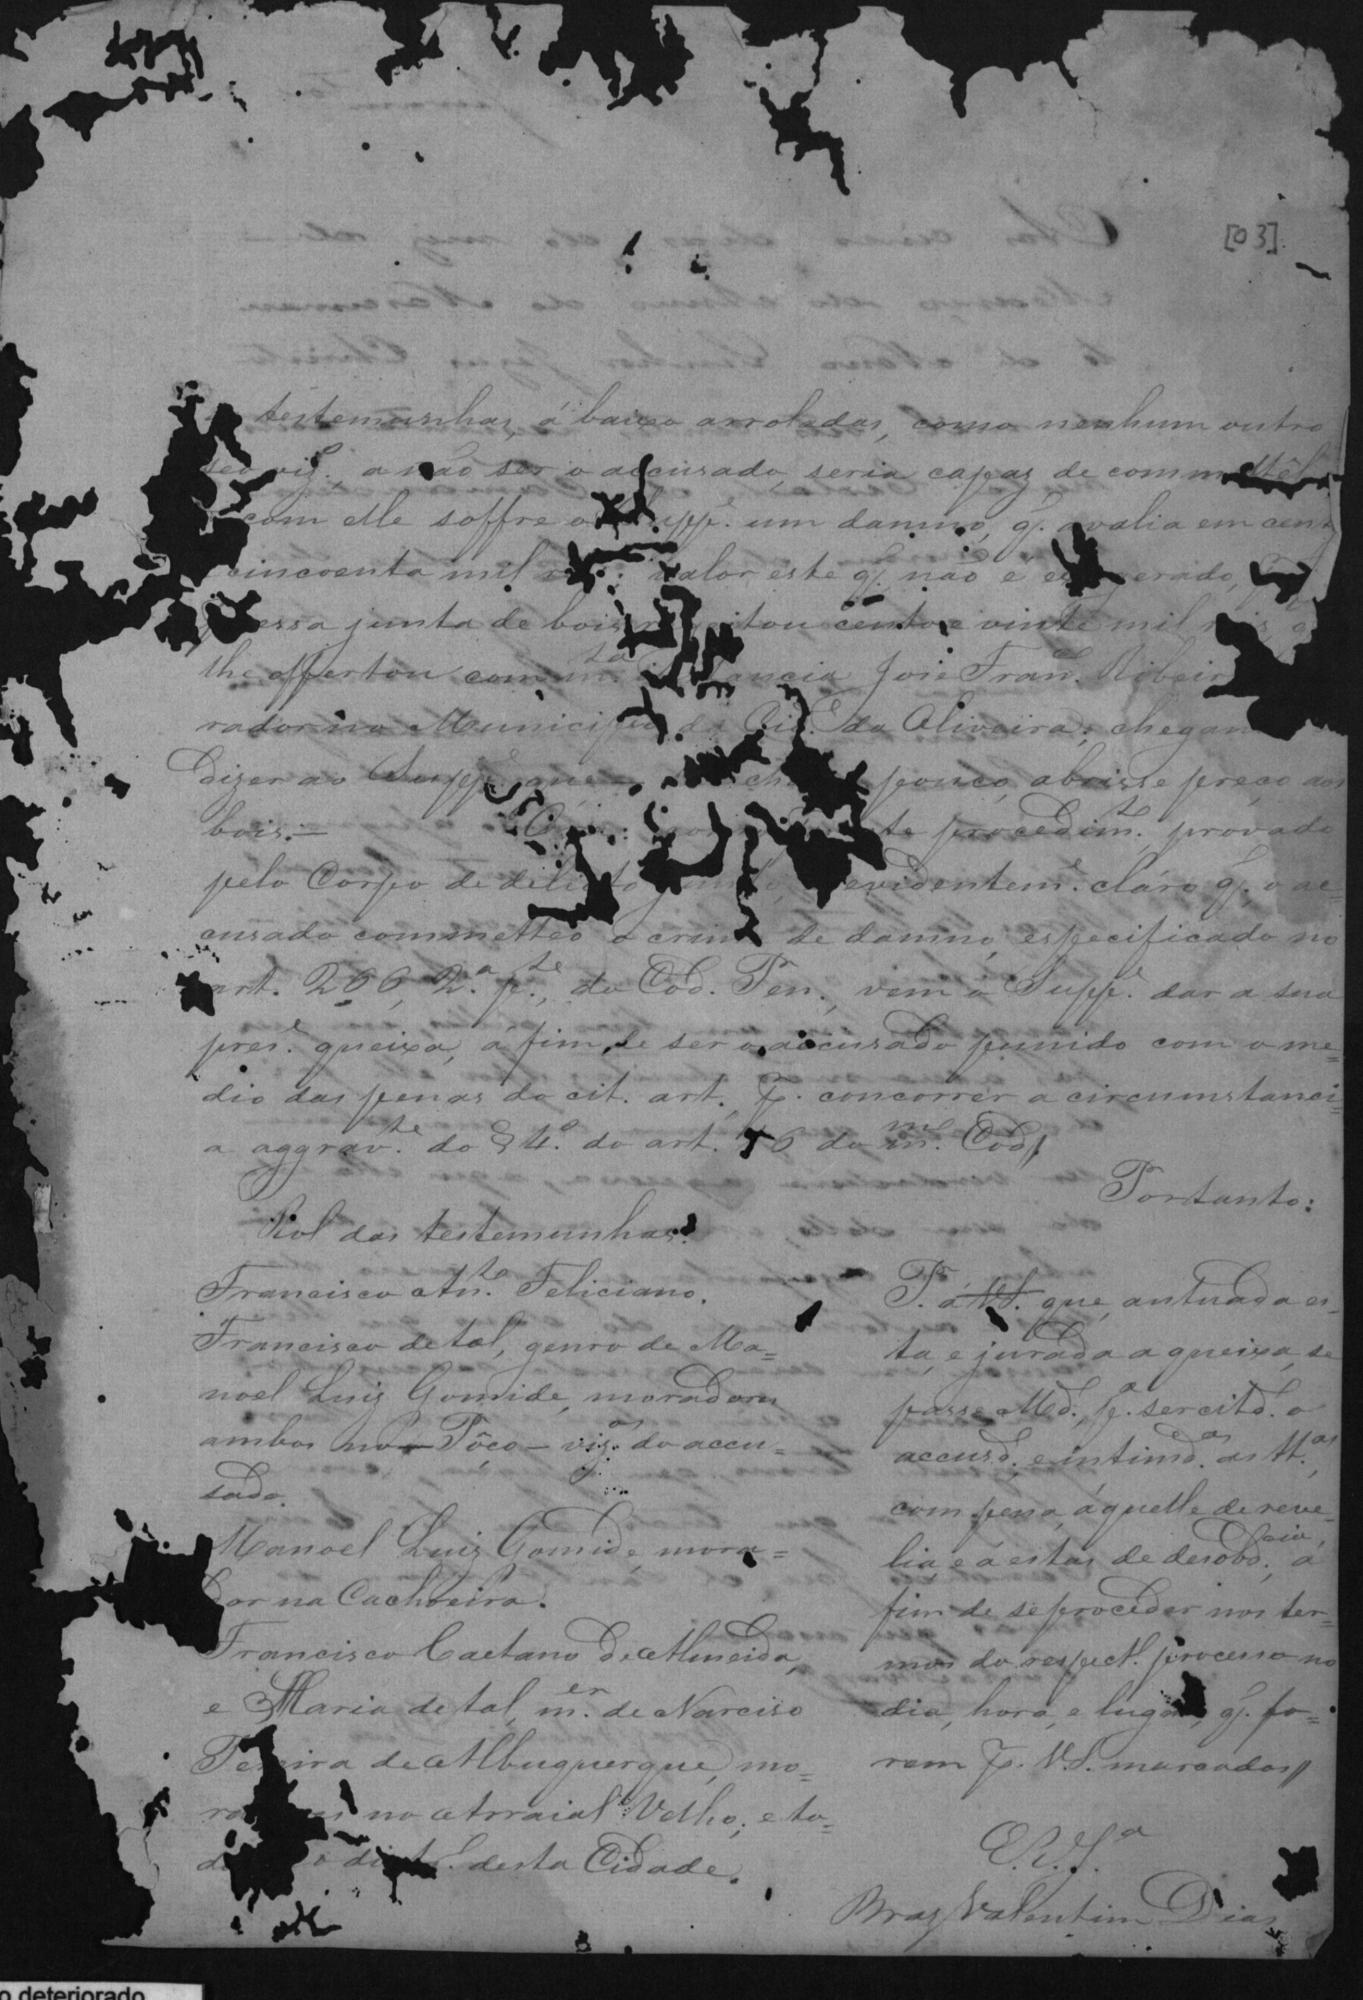 [03]
testemunhas, á baixo arroladas, como nenhum outro
seo viz.º, a não ser o accusado, seria capaz de commettêl
com elle soffre o Supp.e um damno, q.' avalia em cen
cincoenta mil valor este q.' não é
essa junta de bois centoe vinte mil reis q
lhe offertou com m.ta José Fran.co Ribeir
rador no Municipio da Oliveira; chegan
dizer ao Supp.e que pouco, abrisse preço aos
bois.—
te procedim.to, provado
pelo Corpo de delicto evidentem.e claro q.' o ac=
cusado commetteo o crime de damno, especificado no
art. 266, 2.a p.te, do Cod. Pen., vem o Supp.e dar a sua
pres.e queixa, á fim de ser o accusado punido com o me=
dio das penas do cit. art., P. concorrer a circumstanci=
a aggrav.te do § 4.º do art. 16 do m.mo Cod/
Portanto:
Rol das testemunhas:
Francisco An.to Feliciano.
Francisco de tal, genro de Ma=
noel Luiz Gomide, moradores
ambos no—Pôço—viz.os do accu=
sado.
Manoel Luiz Gomide, mora=
dor na Cachoeira.
Francisco Caetano de Almeida,
e Maria de tal, m.er de Narciso
Pereira de Albuquerque, mo=
no Arraial Velho; e to=
desta Cidade.
P. á V.S. que, autuada es-
ta, e jurada a queixa, se
passe Md., p.a ser citd. o
accusd., e intimd.as as tt.as,
com pena, áquelle de reve=
lia, e á estas de desobd.cia, á
fim de se proceder nos ter=
mos do respect. processo no
dia, hora, e lugar, q.' fo=
rem P. V.S. marcados//
E.R.J.a
Braz Valentim Dias
o deteriorado